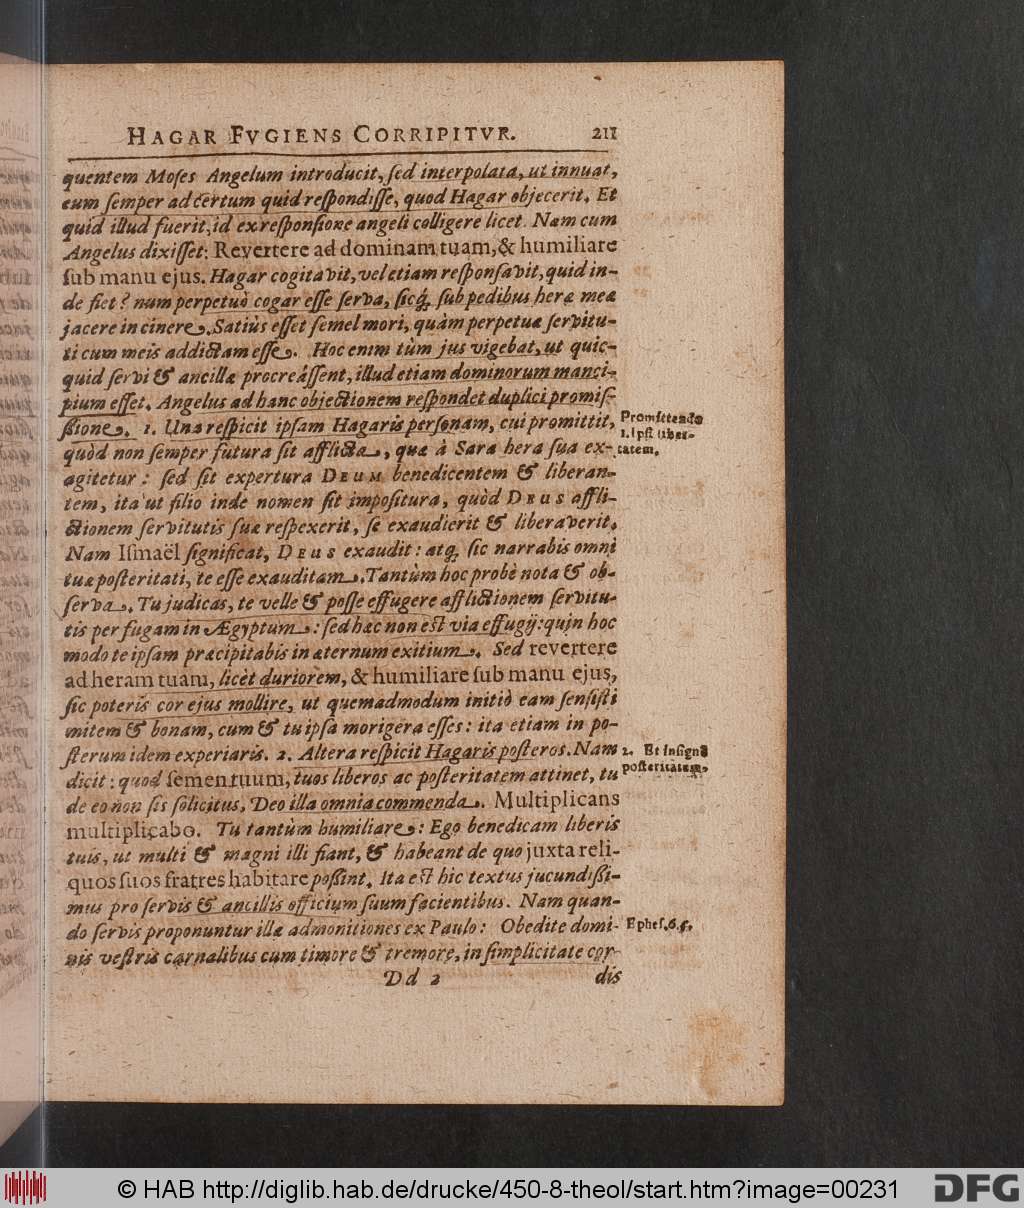 HAGAR FVGIENS CORRIPITVR. 211
quentem Moses Angelum introducit, sed interpolata, ut innuat,
eum semper ad certum quid respondisse, quod Hagar objecerit. Et
quid illud fuerit, id ex responsione angeli colligere licet. Nam cum
Angelus dixisset: Revertere ad dominam tuam, & humiliare
sub manu ejus. Hagar cogitavit, vel etiam responsavit, quid in-
de fiet? num perpetuò cogar esse serva, sicq́; sub pedibus heræ meæ
jacere in cinere. Satiùs esset semel mori, quàm perpetuæ servitu-
ti cum meis addictam esse. Hoc enim tùm jus vigebat, ut quic-
quid servi & ancillæ procreâssent, illud etiam dominorum manci-
pium esset. Angelus ad hanc objectionem respondet duplici promis-
sione. 1. Una respicit ipsam Hagaris personam, cui promittit,
quòd non semper futura sit afflicta, quæ à Sara hera sua ex-
agitetur: sed sit expertura DEUM benedicentem & liberan-
tem, ita ut filio inde nomen sit impositura, quòd DEUS affli-
ctionem servitutis suæ respexerit, se exaudierit & liberaverit.
Nam Ismaël significat, DEUS exaudit: atq; sic narrabis omni
tuæ posteritati, te esse exauditam. Tantùm hoc probè nota & ob-
serva. Tu judicas, te velle & posse effugere afflictionem servitu-
tis per fugam in Ægyptum: sed hæc non est via effugij: quin hoc
modo te ipsam præcipitabis in æternum exitium. Sed revertere
ad heram tuam, licèt duriorem, & humiliare sub manu ejus,
sic poteris cor ejus mollire, ut quemadmodum initiò eam sensisti
mitem & bonam, cum & tu ipsa morigera esses: ita etiam in po-
sterum idem experiaris. 2. Altera respicit Hagaris posteros. Nam
dicit: quod semen tuum, tuos liberos ac posteritatem attinet, tu
de eo non sis solicitus, Deo illa omnia commenda. Multiplicans
multiplicabo. Tu tantùm humiliare: Ego benedicam liberis
tuis, ut multi & magni illi fiant, & habeant de quo juxta reli-
quos suos fratres habitare possint. Ita est hic textus jucundissi-
mus pro servis & ancillis officium suum facientibus. Nam quan-
do servis proponuntur illæ admonitiones ex Paulo: Obedite domi-
nis vestris carnalibus cum timore & tremore, in simplicitate cor-
Dd 2 dis
Promittendo
1. Ipsi liber-
tatem.
2. Et insignẽ
posteritatem.
Ephes. 6. 5.
© HAB http://diglib.hab.de/drucke/450-8-theol/start.htm?image=00231
DFG